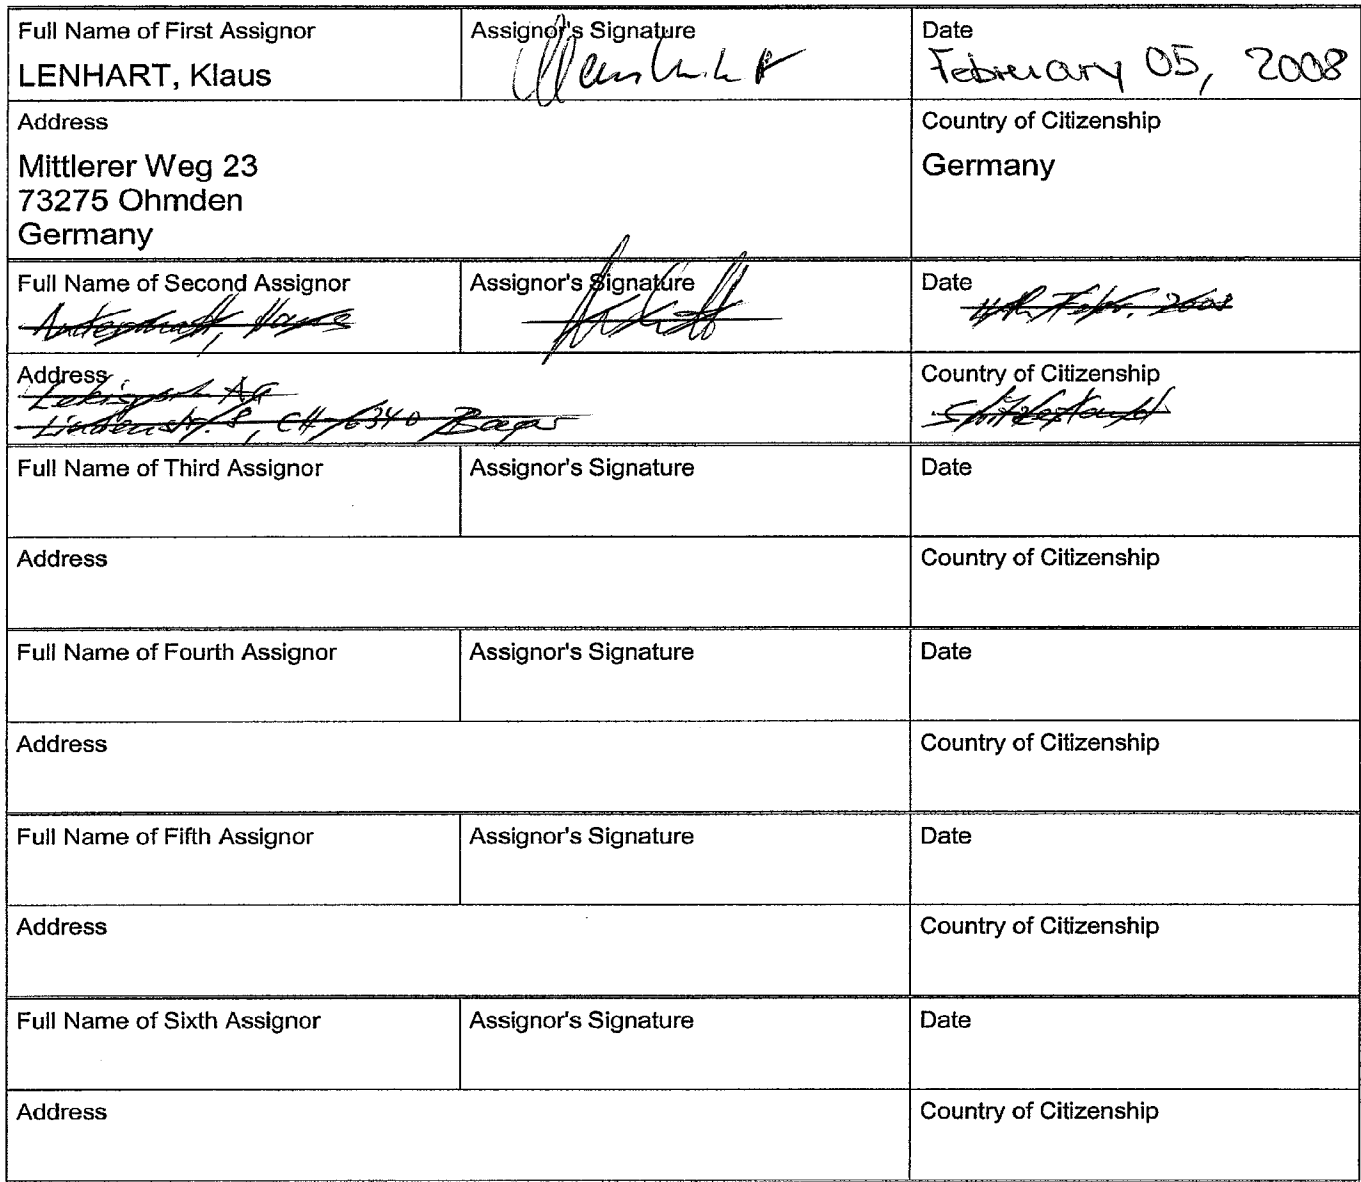 Full Name of First Assignor
LENHART, Klaus
Assignor's Signature
Date
February 05, 2008
Address
Mittlerer Weg 23
73275 Ohmden
Germany
Country of Citizenship
Germany
Full Name of Second Assignor
Assignor's Signature
Date
4th Febr. 2008
Address
Lekisport AG
Lindenstr. 8, CH-6340 Baar
Country of Citizenship
Full Name of Third Assignor
Assignor's Signature
Date
Address
Country of Citizenship
Full Name of Fourth Assignor
Assignor's Signature
Date
Address
Country of Citizenship
Full Name of Fifth Assignor
Assignor's Signature
Date
Address
Country of Citizenship
Full Name of Sixth Assignor
Assignor's Signature
Date
Address
Country of Citizenship